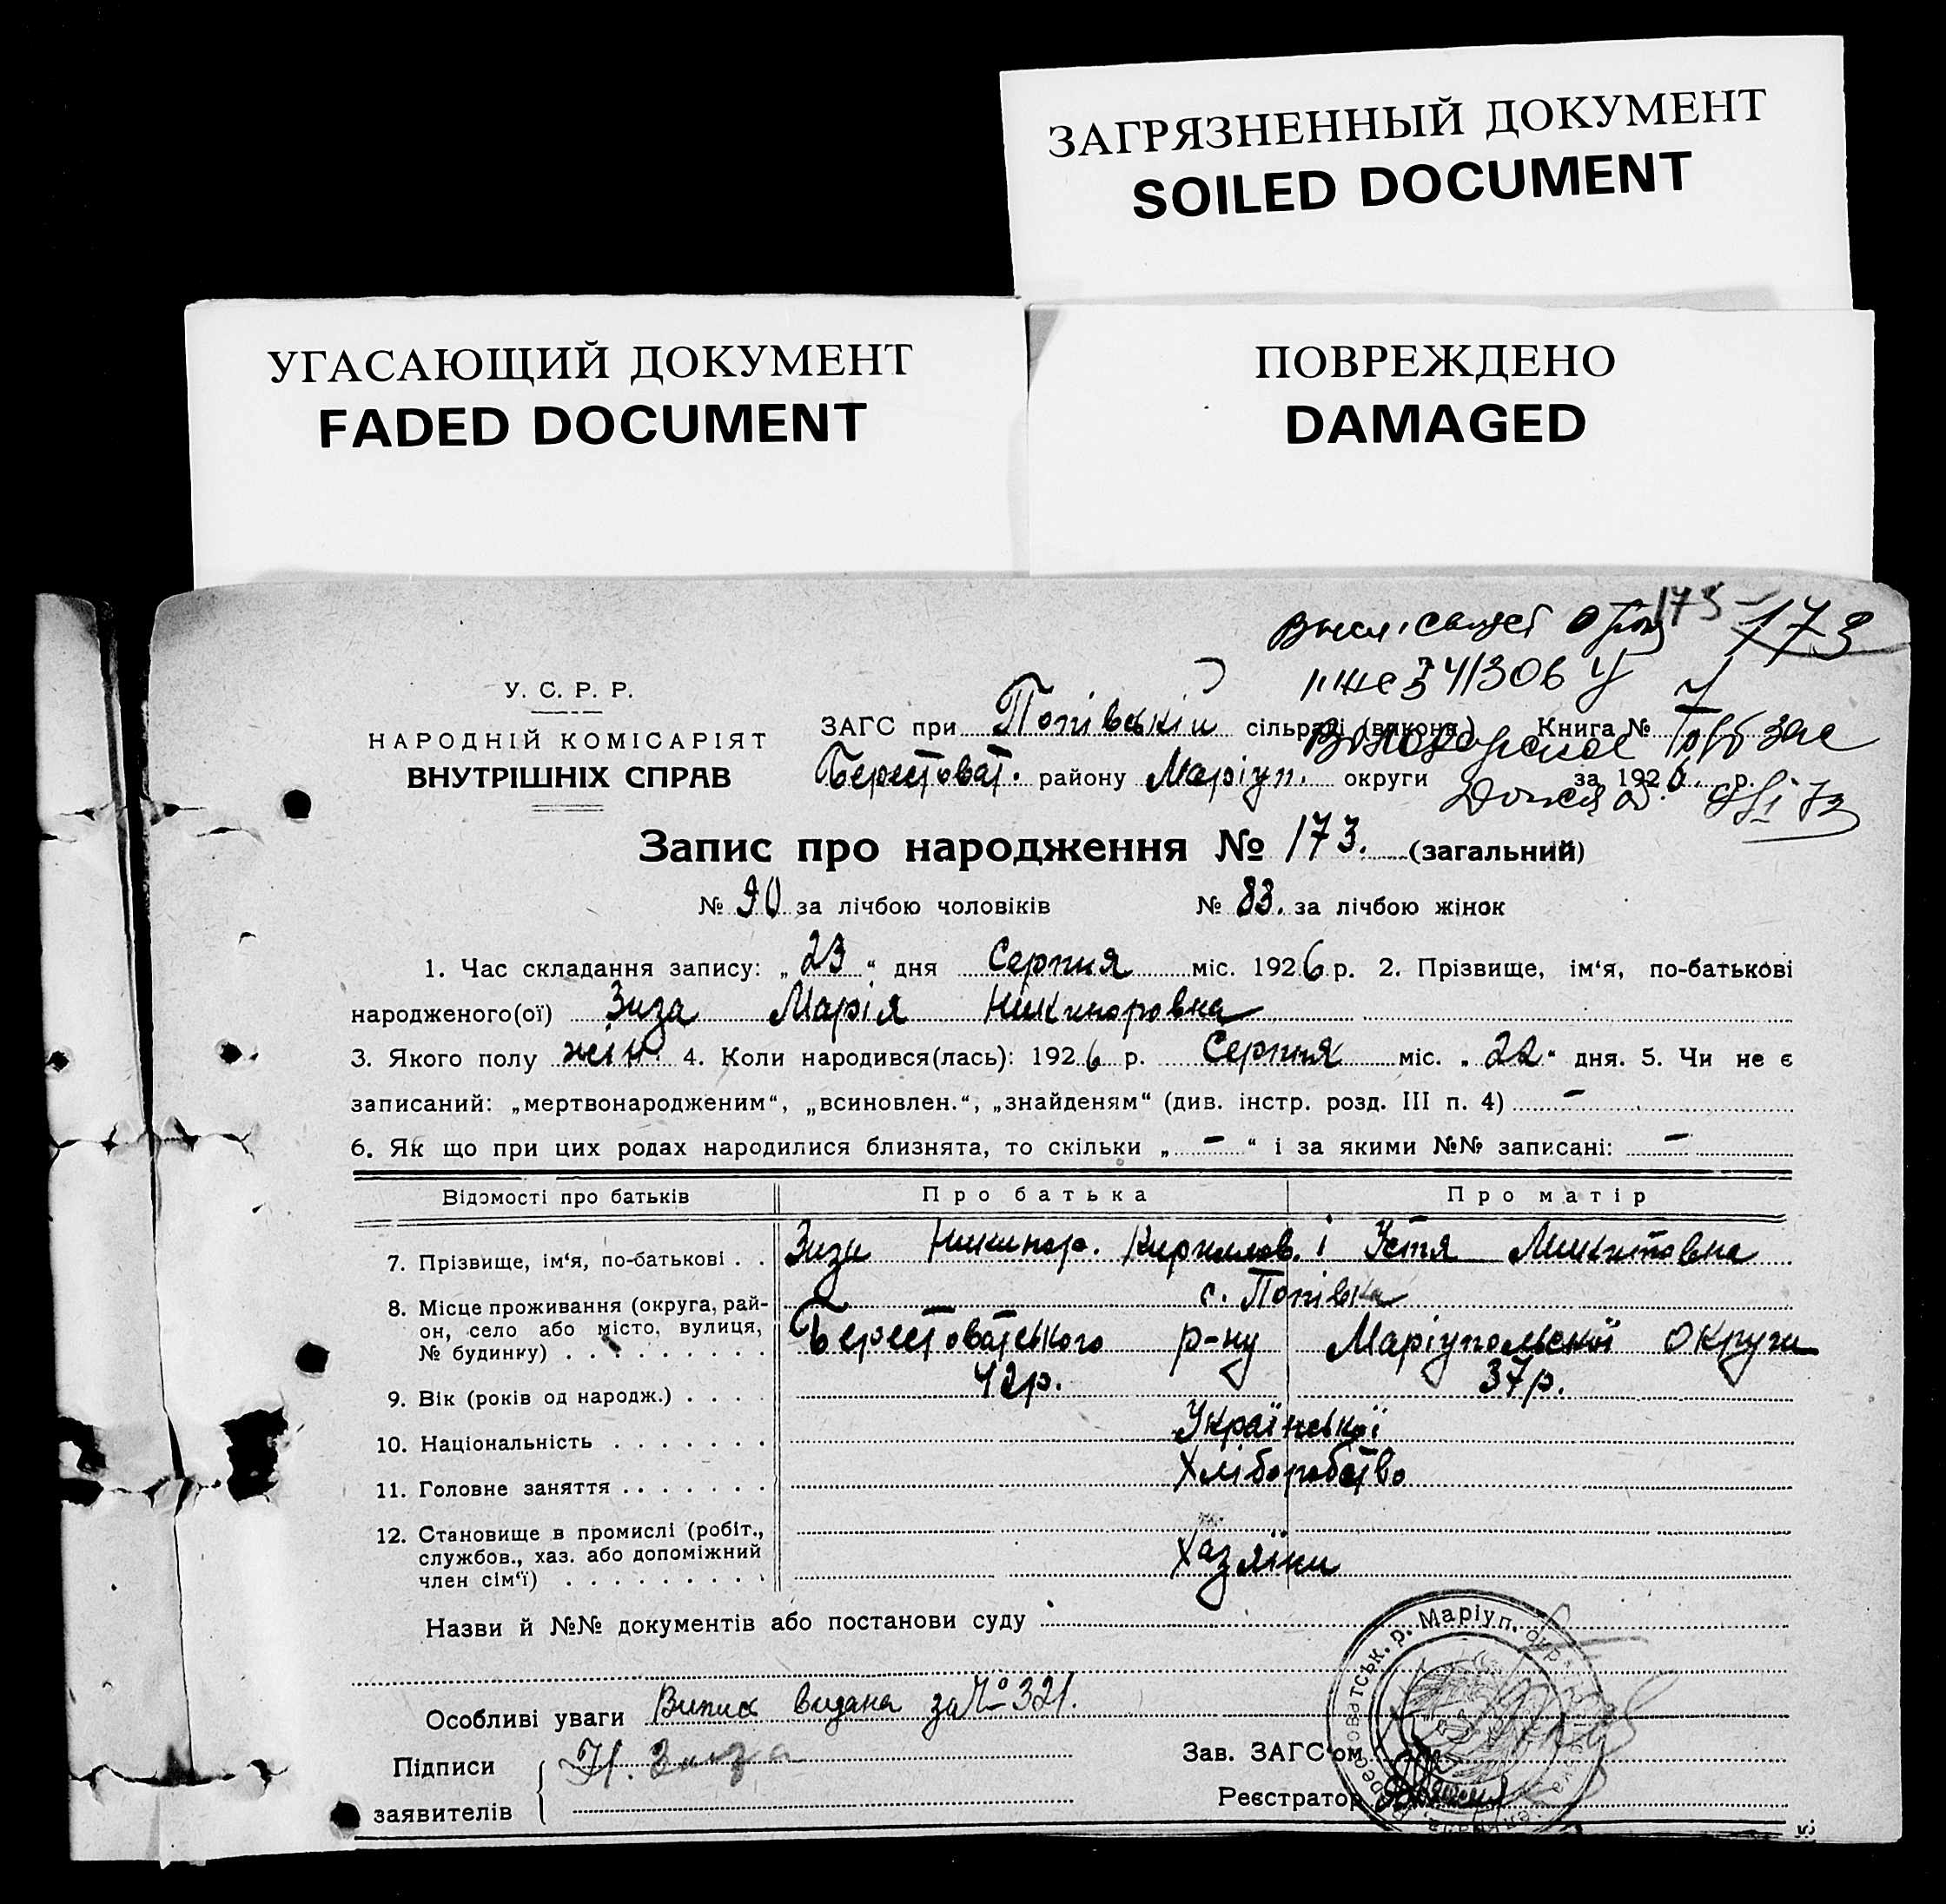 ЗАГРЯЗНЕННЫЙ ДОКУМЕНТ
SOILED DOCUMENT
УГАСАЮЩИЙ ДОКУМЕНТ
FADED DOCUMENT
ПОВРЕЖДЕНО
DAMAGED
173 173
У. С. Р. Р.
НАРОДНІЙ КОМІСАРІЯТ
ВНУТРІШНІХ СПРАВ
ЗАГС при Попівській сільраді (виконк.) Книга №
Берестоват. району Маріуп. округи за 1926 р.
Запис про народження № 173. (загальний)
№ 90 за лічбою чоловіків № 83. за лічбою жінок
1. Час складання запису: „23“ дня Серпня міс. 1926 р. 2. Прізвище, ім‘я, по-батькові
народженого(ої) Зиза Марія Никиноровна
3. Якого полу жін. 4. Коли народився(лась): 1926 р. Серпня міс. „22“ дня. 5. Чи не є
записаний: „мертвонародженим“, „всиновлен.“, „знайденям“ (див. інстр. розд. III п. 4) –
6. Як що при цих родах народилися близнята, то скільки „ – “ і за якими №№ записані: –
Відомості про батьків Про батька Про матір
7. Прізвище, ім‘я, по-батькові . . Зизи Никинор. Кирилов. і Устя Микитовна
8. Місце проживання (округа, рай- с. Попівка
он, село або місто, вулиця, Берестоватського р-ну Маріупольської округи
№ будинку) . . . . . . . . .
9. Вік (років од народж.) . . . . 42р. 37р.
10. Національність . . . . . . . Української
11. Головне заняття . . . . . . . Хліборобство
12. Становище в промислі (робіт.,
службов., хаз. або допоміжний Хазяїни
член сім‘ї) . . . . . . . . .
Назви й №№ документів або постанови суду
Особливі уваги Випис видана за № 321.
Підписи Н. Зиза Зав. ЗАГС‘ом
заявителів Реєстратор
р. Маріуп.